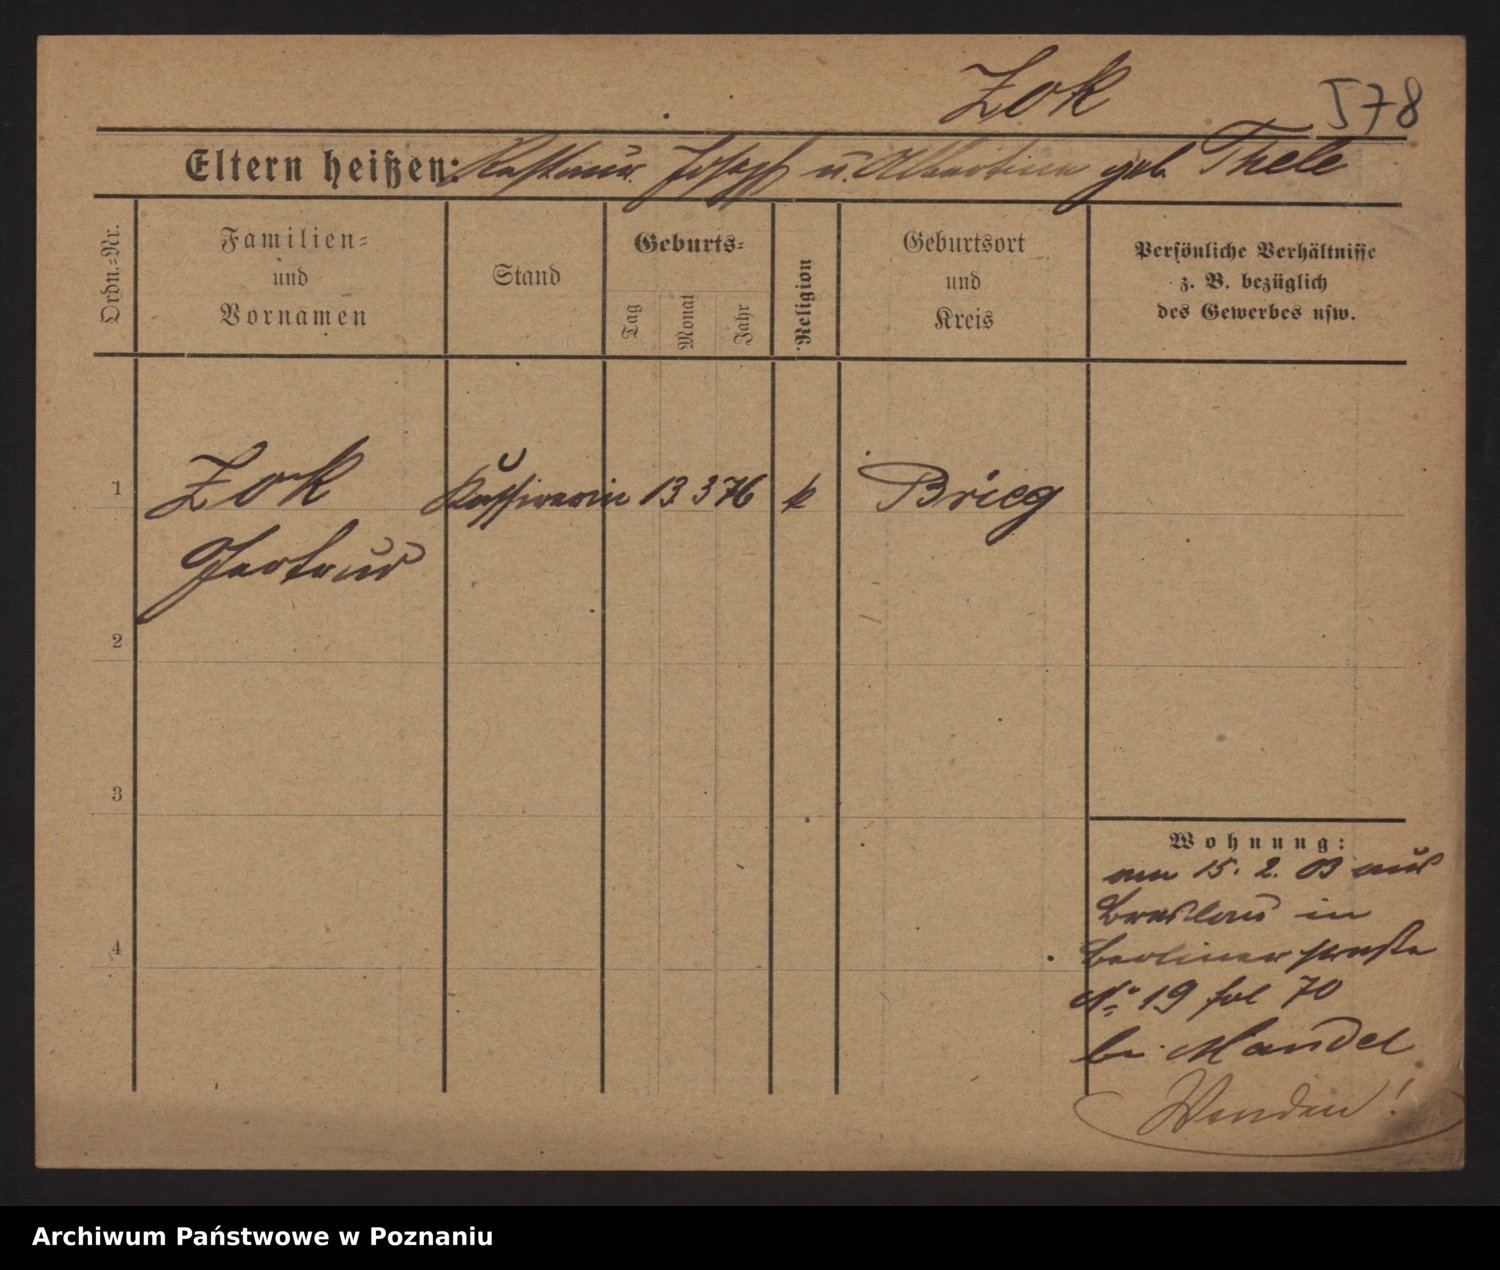 Zok
578
Eltern heißen: Restaur. Josef u. Albertine geb. Thele
Ordn.-Nr.
Familien-
und
Vornamen
Stand
Geburts-
Tag
Monat
Jahr
Religion
Geburtsort
und
Kreis
Persönliche Verhältnisse
z. B. bezüglich
des Gewerbes usw.
1
Zok
Kassirerin
13 3 76
k
Brieg
Gertrud
2
3
4
Wohnung:
am 15. 2. 03 aus
Breslau in
Berliner straße
No 19 fol 70
bei Mandel
Wenden!
Archiwum Państwowe w Poznaniu